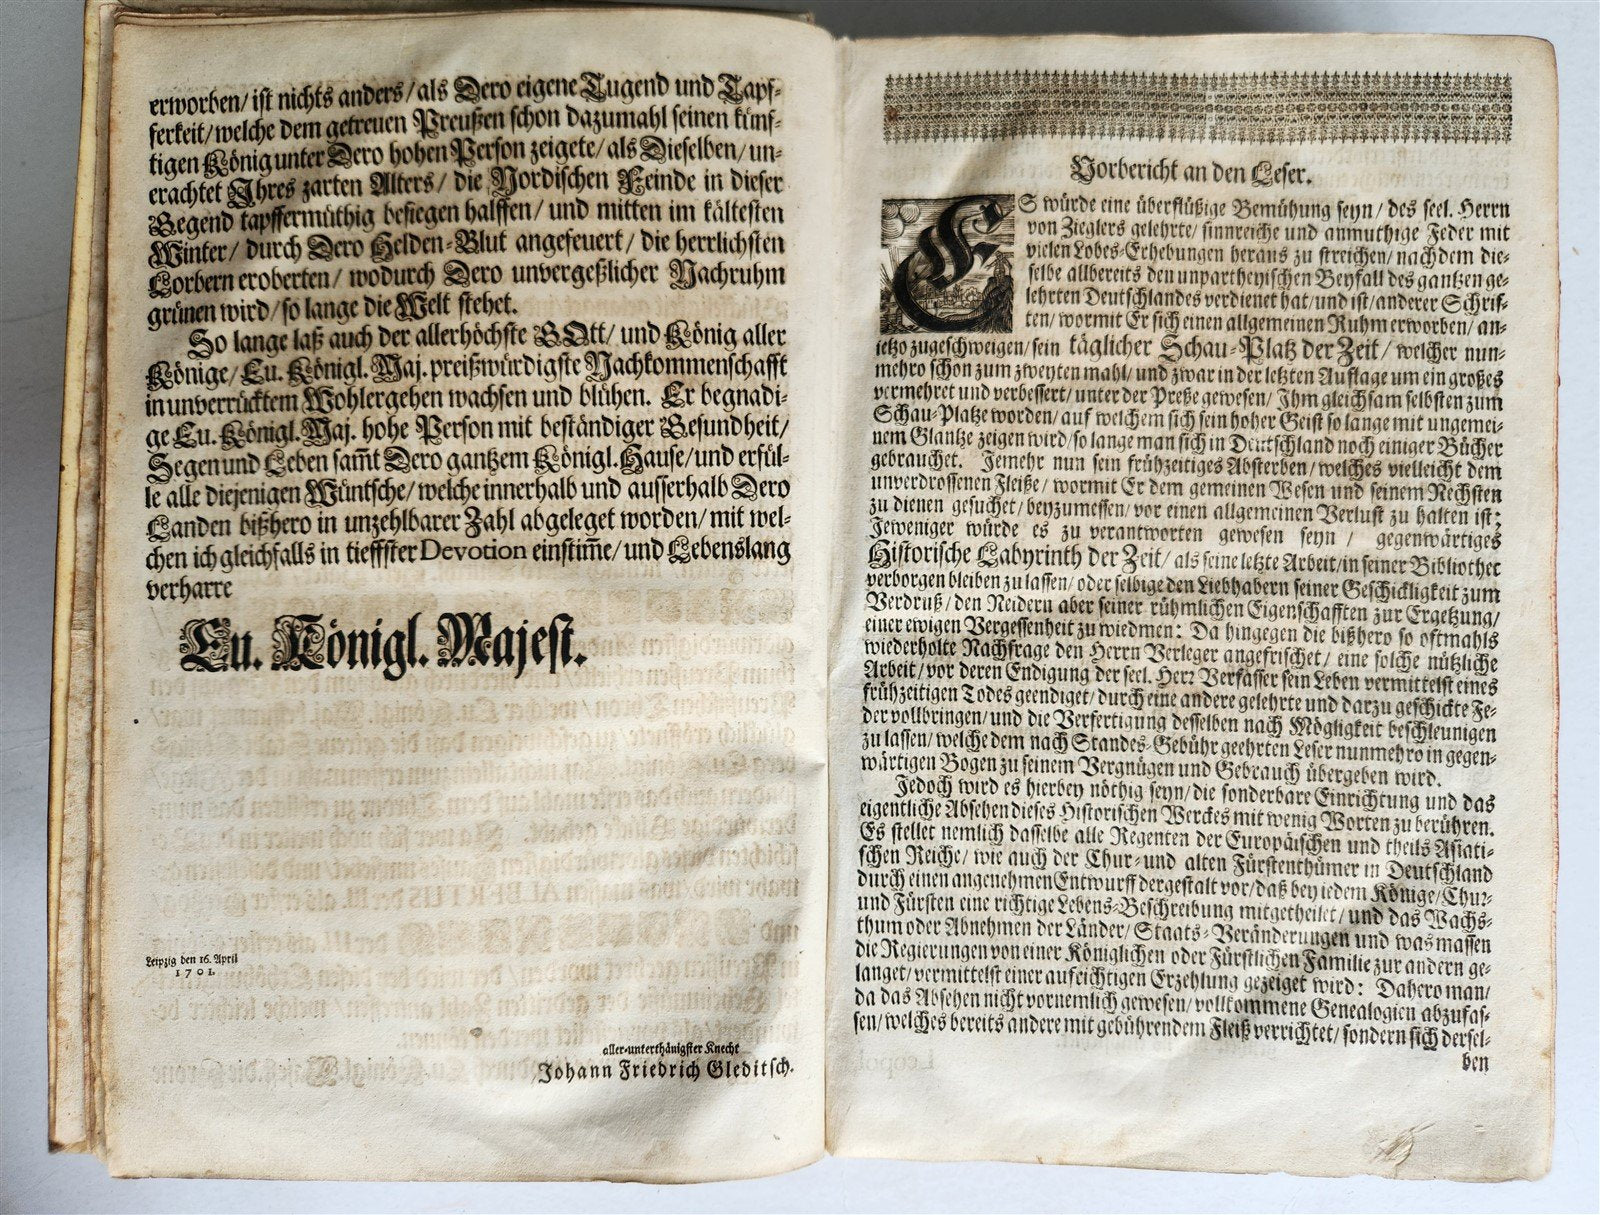 erworben/ ist nichts anders/ als Dero eigene Tugend und Tapf-
ferkeit/ welche dem getreuen Preußen schon dazumahl seinen künf-
tigen König unter Dero hohen Person zeigete/ als Dieselben/ un-
erachtet Ihres zarten Alters/ die Nordischen Feinde in dieser
Gegend tapffermüthig besiegen halffen/ und mitten im kältesten
Winter/ durch Dero Helden-Blut angefeuert/ die herrlichsten
Lorbern eroberten/ wodurch Dero unvergeßlicher Nachruhm
grünen wird/ so lange die Welt stehet.
So lange laß auch der allerhöchste GOtt/ und König aller
Könige/ Eu. Königl. Maj. preißwürdigste Nachkommenschafft
in unverrücktem Wohlergehen wachsen und blühen. Er begnadi-
ge Eu. Königl. Maj. hohe Person mit beständiger Gesundheit/
Segen und Leben sam̃t Dero gantzem Königl. Hause/ und erfül-
le alle diejenigen Wüntsche/ welche innerhalb und ausserhalb Dero
Landen bißhero in unzehlbarer Zahl abgeleget worden/ mit wel-
chen ich gleichfalls in tieffster Devotion einstim̃e/ und Lebenslang
verharre
Eu. Königl. Majest.
Leipzig den 16. April
1701.
aller-unterthänigster Knecht
Johann Friedrich Gleditsch.
Vorbericht an den Leser.
ES würde eine überflüßige Bemühung seyn/ des seel. Herrn
von Zieglers gelehrte/ sinnreiche und anmuthige Feder mit
vielen Lobes-Erhebungen heraus zu streichen/ nachdem die-
selbe allbereits den unpartheyischen Beyfall des gantzen ge-
lehrten Deutschlandes verdienet hat/ und ist/ anderer Schrif-
ten/ wormit Er sich einen allgemeinen Ruhm erworben/ an-
ietzo zugeschweigen/ sein täglicher Schau-Platz der Zeit/ welcher nun-
mehro schon zum zweyten mahl/ und zwar in der letzten Auflage um ein großes
vermehret und verbessert/ unter der Preße gewesen/ Ihm gleichsam selbsten zum
Schau-Platze worden/ auf welchem sich sein hoher Geist so lange mit ungemei-
nem Glantze zeigen wird/ so lange man sich in Deutschland noch einiger Bücher
gebrauchet. Jemehr nun sein frühzeitiges Absterben/ welches vielleicht dem
unverdrossenen Fleiße/ wormit Er dem gemeinen Wesen und seinem Nechsten
zu dienen gesuchet/ beyzumessen/ vor einen allgemeinen Verlust zu halten ist;
Jeweniger würde es zu verantworten gewesen seyn/ gegenwärtiges
Historische Labyrinth der Zeit/ als seine letzte Arbeit/ in seiner Bibliothec
verborgen bleiben zu lassen/ oder selbige den Liebhabern seiner Geschickligkeit zum
Verdruß/ den Neidern aber seiner rühmlichen Eigenschafften zur Ergetzung/
einer ewigen Vergessenheit zu wiedmen: Da hingegen die bißhero so oftmahls
wiederholte Nachfrage den Herrn Verleger angefrischet/ eine solche nützliche
Arbeit/ vor deren Endigung der seel. Herr Verfasser sein Leben vermittelst eines
frühzeitigen Todes geendiget/ durch eine andere gelehrte und darzu geschickte Fe-
der vollbringen/ und die Verfertigung desselben nach Möglichkeit beschleunigen
zu lassen/ welche dem nach Standes-Gebühr geehrten Leser nunmehro in gegen-
wärtigen Bogen zu seinem Vergnügen und Gebrauch übergeben wird.
Jedoch wird es hierbey nöthig seyn/ die sonderbare Einrichtung und das
eigentliche Absehen dieses Historischen Werckes mit wenig Worten zu berühren.
Es stellet nemlich dasselbe alle Regenten der Europäischen und theils Asiati-
schen Reiche/ wie auch der Chur- und alten Fürstenthümer in Deutschland
durch einen angenehmen Entwurff dergestalt vor/ daß bey iedem Könige/ Chur-
und Fürsten eine richtige Lebens-Beschreibung mitgetheilet/ und das Wachs-
thum oder Abnehmen der Länder/ Staats-Veränderungen und was massen
die Regierungen von einer Königlichen oder Fürstlichen Familie zur andern ge-
langet/ vermittelst einer aufrichtigen Erzehlung gezeiget wird: Dahero man/
da das Absehen nicht vornemlich gewesen/ vollkommene Genealogien abzufas-
sen/ welches bereits andere mit gebührendem Fleiß verrichtet/ sondern sich dersel-
ben